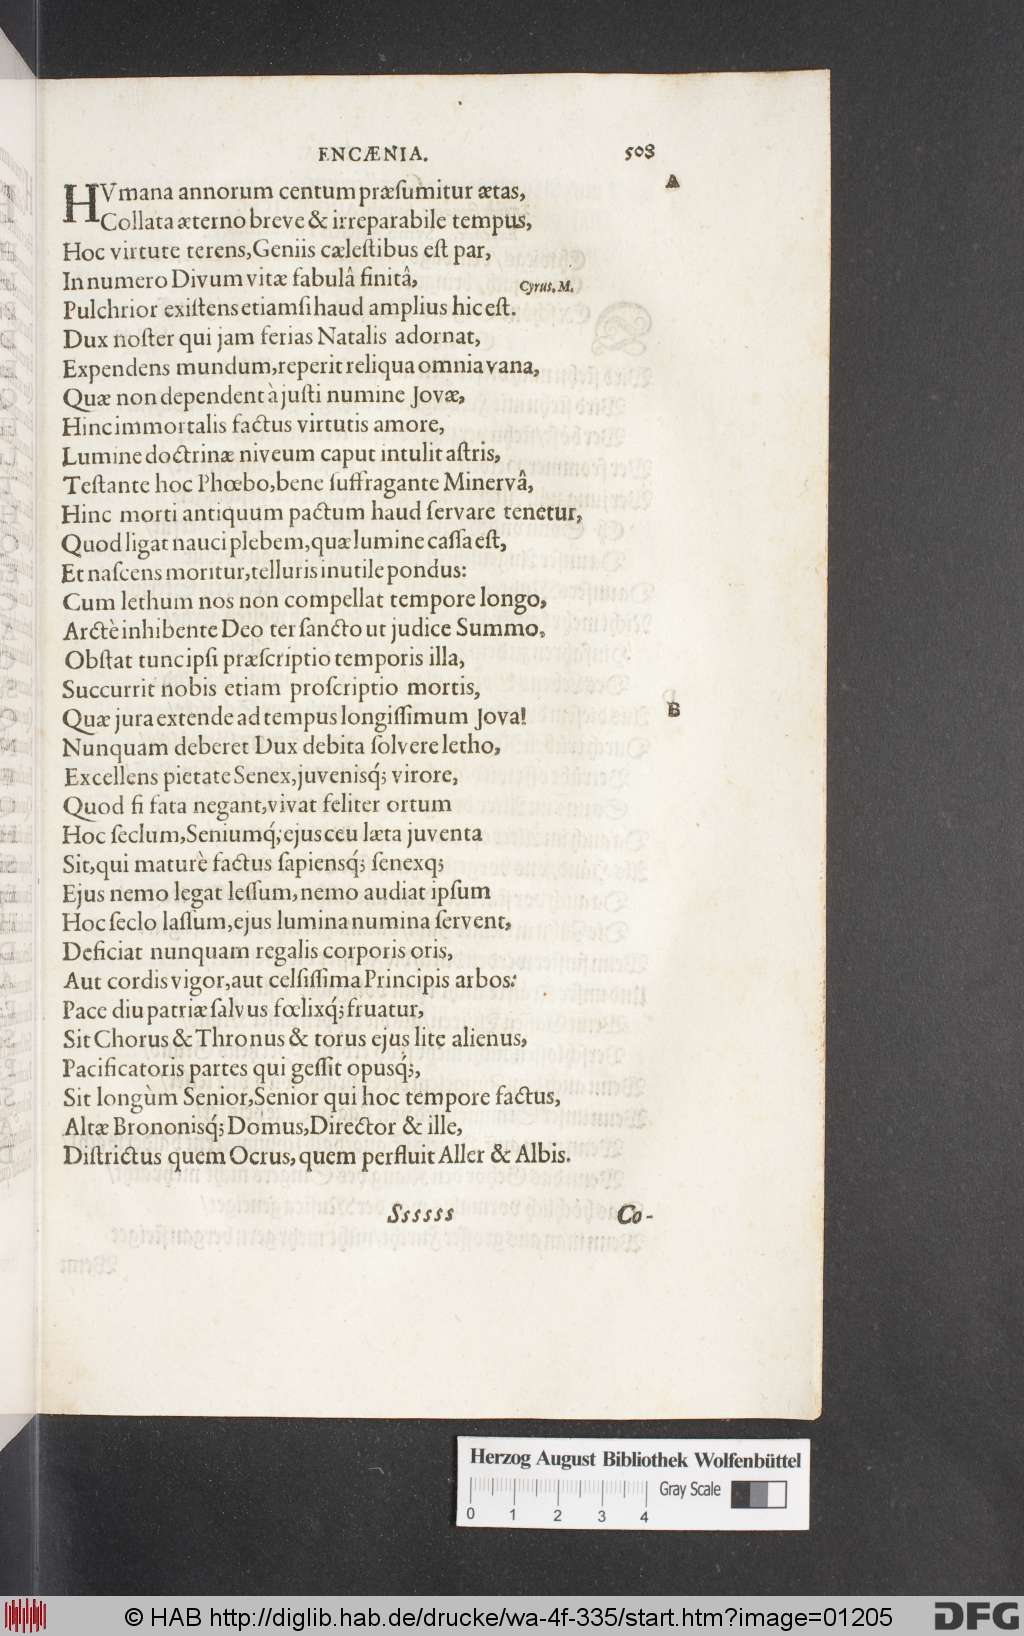 ENCÆNIA. 503
A
HVmana annorum centum præſumitur ætas,
Collata æterno breve & irreparabile tempus,
Hoc virtute terens, Geniis cæleſtibus eſt par,
In numero Divum vitæ fabulâ finitâ,
Cyrus, M.
Pulchrior exiſtens etiamſi haud amplius hic eſt.
Dux noſter qui jam ferias Natalis adornat,
Expendens mundum, reperit reliqua omnia vana,
Quæ non dependent à juſti numine Jovæ,
Hinc immortalis factus virtutis amore,
Lumine doctrinæ niveum caput intulit aſtris,
Teſtante hoc Phœbo, bene ſuffragante Minervâ,
Hinc morti antiquum pactum haud ſervare tenetur,
Quod ligat nauci plebem, quæ lumine caſſa eſt,
Et naſcens moritur, telluris inutile pondus:
Cum lethum nos non compellat tempore longo,
Arctè inhibente Deo ter ſancto ut judice Summo,
Obſtat tunc ipſi præſcriptio temporis illa,
Succurrit nobis etiam proſcriptio mortis,
Quæ jura extende ad tempus longiſſimum Jova!
B
Nunquam deberet Dux debita ſolvere letho,
Excellens pietate Senex, juvenisq́; virore,
Quod ſi fata negant, vivat feliter ortum
Hoc ſeclum, Seniumq́; ejus ceu læta juventa
Sit, qui maturè factus ſapiensq́; ſenexq;
Ejus nemo legat leſſum, nemo audiat ipſum
Hoc ſeclo laſſum, ejus lumina numina ſervent,
Deficiat nunquam regalis corporis oris,
Aut cordis vigor, aut celſiſſima Principis arbos:
Pace diu patriæ ſalvus fœlixq́; fruatur,
Sit Chorus & Thronus & torus ejus lite alienus,
Pacificatoris partes qui geſſit opusq́;,
Sit longùm Senior, Senior qui hoc tempore factus,
Altæ Brononisq́; Domus, Director & ille,
Diſtrictus quem Ocrus, quem perfluit Aller & Albis.
Ssssss Co-
Herzog August Bibliothek Wolfenbüttel
Gray Scale
0 1 2 3 4
© HAB http://diglib.hab.de/drucke/wa-4f-335/start.htm?image=01205 DFG